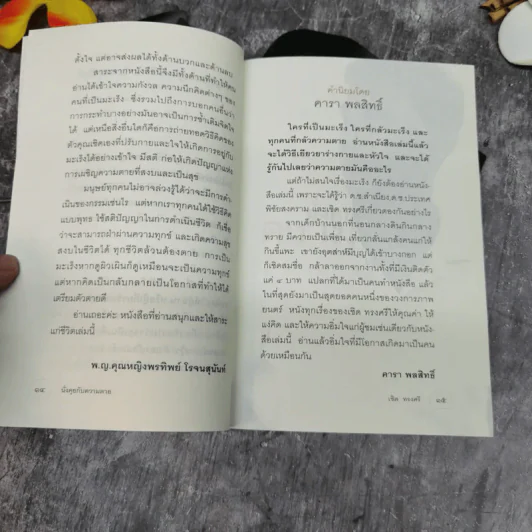 ตั้งใจ แต่อาจส่งผลได้ทั้งด้านบวกและด้านลบ
สาระจากหนังสือนี้จึงมีทั้งด้านที่ทำให้คน
อ่านได้เข้าใจความกังวล ความนึกคิดต่างๆ ของ
คนที่เป็นมะเร็ง ซึ่งรวมไปถึงการบอกคนอื่นว่า
การกระทำบางอย่างมันอาจเป็นการซ้ำเติมจิตใจ
ได้ แต่เหนือสิ่งอื่นใดก็คือการถ่ายทอดวิธีคิดของ
ตัวคุณเชิดเองที่ปรับกายและใจให้เกิดการอยู่กับ
มะเร็งได้อย่างเข้าใจ มีสติ ก่อให้เกิดปัญญาแห่ง
การเผชิญความตายที่สงบและเป็นสุข
มนุษย์ทุกคนไม่อาจล่วงรู้ได้ว่าจะมีการดำ
เนินของกรรมเช่นไร แต่หากเราทุกคนได้ใช้วิธีคิด
แบบพุทธ ใช้สติปัญญาในการดำเนินชีวิต ก็เชื่อ
ว่าจะสามารถนำผ่านความทุกข์ และเกิดความสุข
สงบในชีวิตได้ ทุกชีวิตล้วนต้องตาย การเป็น
มะเร็งหากดูผิวเผินก็ดูเหมือนจะเป็นความทุกข์
แต่หากคิดเป็นกลับกลายเป็นโอกาสที่ทำให้ได้
เตรียมตัวตายดี
อ่านเถอะค่ะ หนังสือที่อ่านสนุกและให้สาระ
แก่ชีวิตเล่มนี้
พ.ญ.คุณหญิงพรทิพย์ โรจนสุนันท์
๑๔ นั่งคุยกับความตาย
คำนิยมโดย
ดารา พลสิทธิ์
ใครที่เป็นมะเร็ง ใครที่กลัวมะเร็ง และ
ทุกคนที่กลัวความตาย อ่านหนังสือเล่มนี้แล้ว
จะได้วิธีเยียวยาร่างกายและหัวใจ และจะได้
รู้กันไปเลยว่าความตายมันคืออะไร
แต่ถ้าไม่สนใจเรื่องมะเร็ง ก็ยังต้องอ่านหนัง-
สือเล่มนี้ เพราะจะได้รู้ว่า ด.ช.สำเนียง,ด.ช.ประเทศ
พิชัยสงคราม และเชิด ทรงศรีเกี่ยวดองกันอย่างไร
จากเด็กบ้านนอกที่นอนกลางดินกินกลาง
ทราย มีควายเป็นเพื่อน เที่ยวกลั่นแกล้งคนแก่ให้
กินขี้แพะ เขายังอุตส่าห์มีบุญได้เข้าบางกอก แต่
ก็เชิดสมชื่อ กล้าลาออกจากงานทั้งที่มีเงินติดตัว
แค่ ๔ บาท แปลกที่ได้มาเป็นคนทำหนังสือ แล้ว
ในที่สุดยังมาเป็นสุดยอดคนหนึ่งของวงการภาพ
ยนตร์ หนังทุกเรื่องของเชิด ทรงศรีให้คุณค่า ให้
แง่คิด และให้ความอิ่มใจแก่ผู้ชมเช่นเดียวกับหนัง-
สือเล่มนี้ อ่านแล้วอิ่มใจที่มีโอกาสเกิดมาเป็นคน
ด้วยเหมือนกัน
ดารา พลสิทธิ์
เชิด ทรงศรี ๑๕